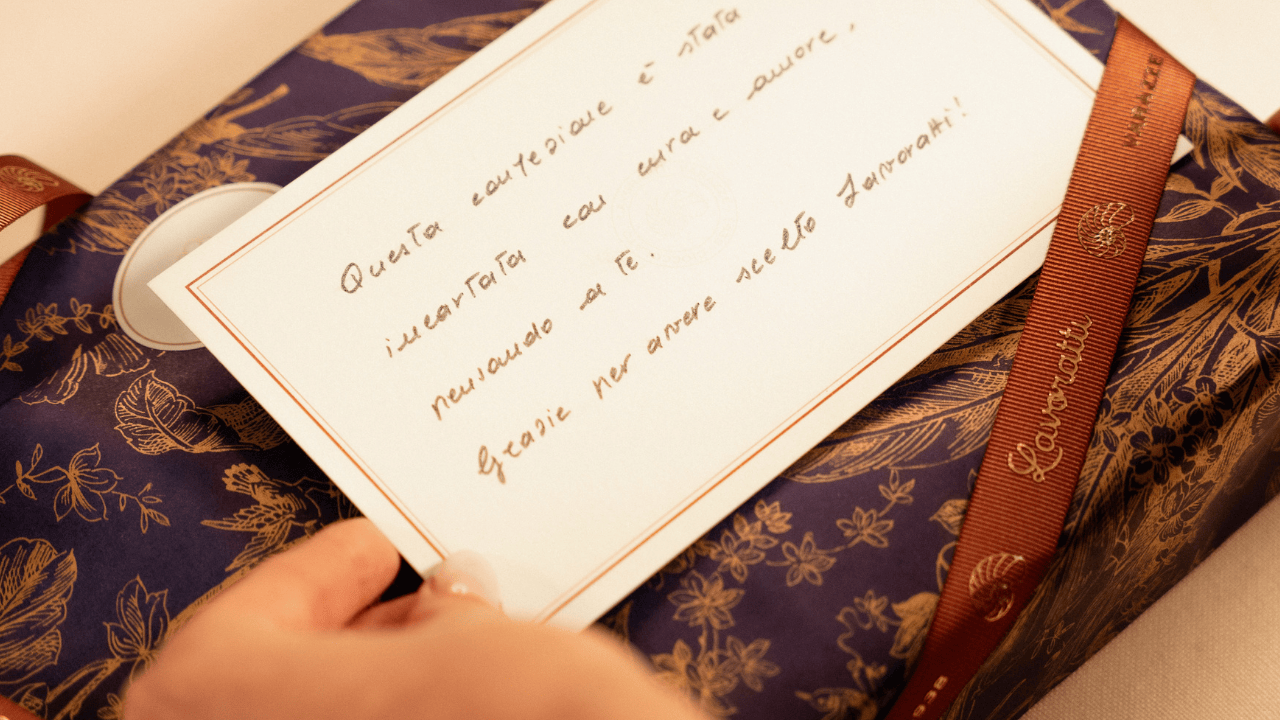 Questa confezione è stata
incartata con cura e amore,
pensando a te.
Grazie per avere scelto Lavoratti!
VARAZZE
Lavoratti
938